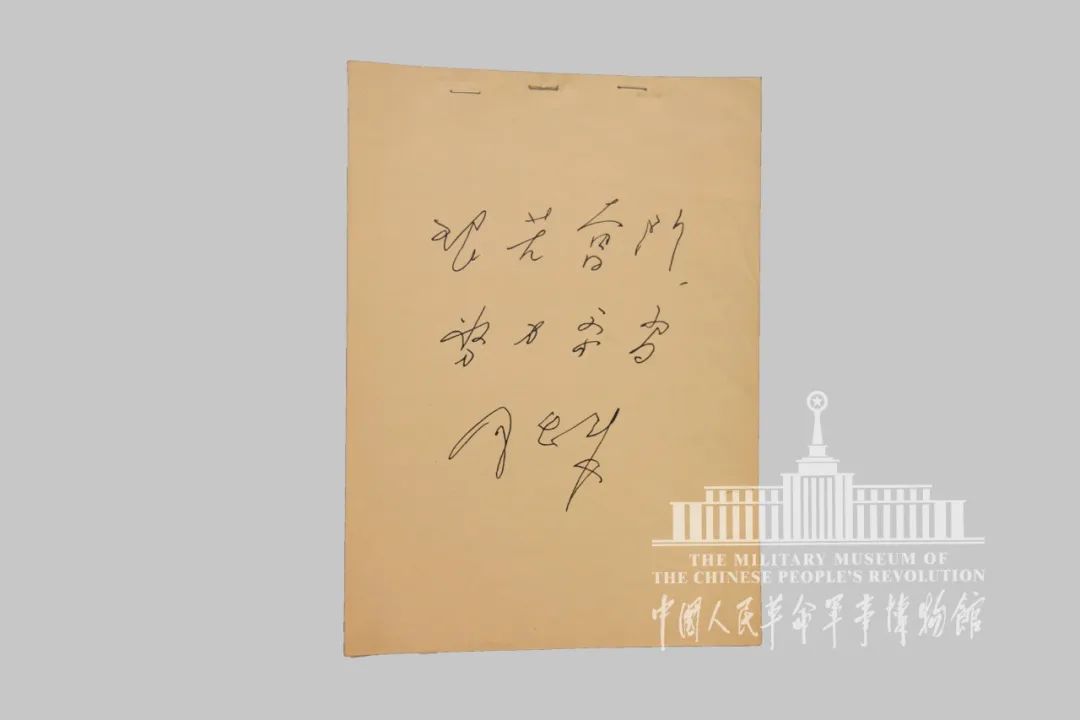 艰苦奋斗
努力学习
THE MILITARY MUSEUM OF
THE CHINESE PEOPLE'S REVOLUTION
中國人民革命軍事博物館